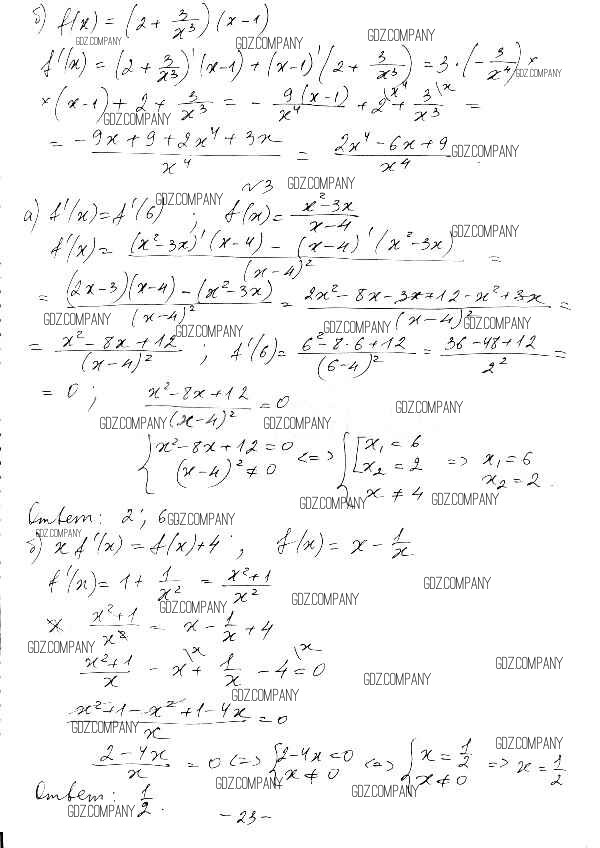 б) f(x) = (2 + 3/x³)(x-1)
GDZ.COMPANY GDZ.COMPANY GDZ.COMPANY
f'(x) = (2 + 3/x³)'(x-1) + (x-1)'(2 + 3/x³) = 3·(-3/x⁴) × GDZ.COMPANY
×(x-1) + 2 + 3/x³ = - 9(x-1)/x⁴ + 2\x⁴ + 3\x/x³ =
GDZ.COMPANY
= -9x+9+2x⁴+3x / x⁴ = 2x⁴-6x+9 / x⁴ GDZ.COMPANY
№3 GDZ.COMPANY
а) f'(x) = f'(6) ; f(x) = x²-3x / x-4
GDZ.COMPANY GDZ.COMPANY
f'(x) = (x²-3x)'(x-4) - (x-4)'(x²-3x) / (x-4)² =
= (2x-3)(x-4) - (x²-3x) / (x-4)² = 2x²-8x-3x+12-x²+3x / (x-4)² =
GDZ.COMPANY GDZ.COMPANY GDZ.COMPANY GDZ.COMPANY
= x²-8x+12 / (x-4)² ; f'(6) = 6²-8·6+12 / (6-4)² = 36-48+12 / 2² =
= 0 ; x²-8x+12 / (x-4)² = 0 GDZ.COMPANY
GDZ.COMPANY GDZ.COMPANY
{ x²-8x+12=0 (x-4)²≠0 <=> { [ x₁=6 x₂=2 x≠4 => x₁=6 x₂=2.
GDZ.COMPANY GDZ.COMPANY
Ответ: 2 ; 6 GDZ.COMPANY
GDZ.COMPANY
б) x f'(x) = f(x)+4 ; f(x) = x - 1/x
f'(x) = 1 + 1/x² = x²+1 / x² GDZ.COMPANY
GDZ.COMPANY GDZ.COMPANY
x x²+1 / x² = x - 1/x + 4
GDZ.COMPANY GDZ.COMPANY
x²+1 / x - x\x + 1/x - 4\x = 0 GDZ.COMPANY
GDZ.COMPANY
x²+1-x²+1-4x / x = 0
GDZ.COMPANY GDZ.COMPANY
2-4x / x = 0 <=> { 2-4x=0 x≠0 <=> { x=1/2 x≠0 => x=1/2
GDZ.COMPANY GDZ.COMPANY
Ответ: 1/2.
GDZ.COMPANY
-23-